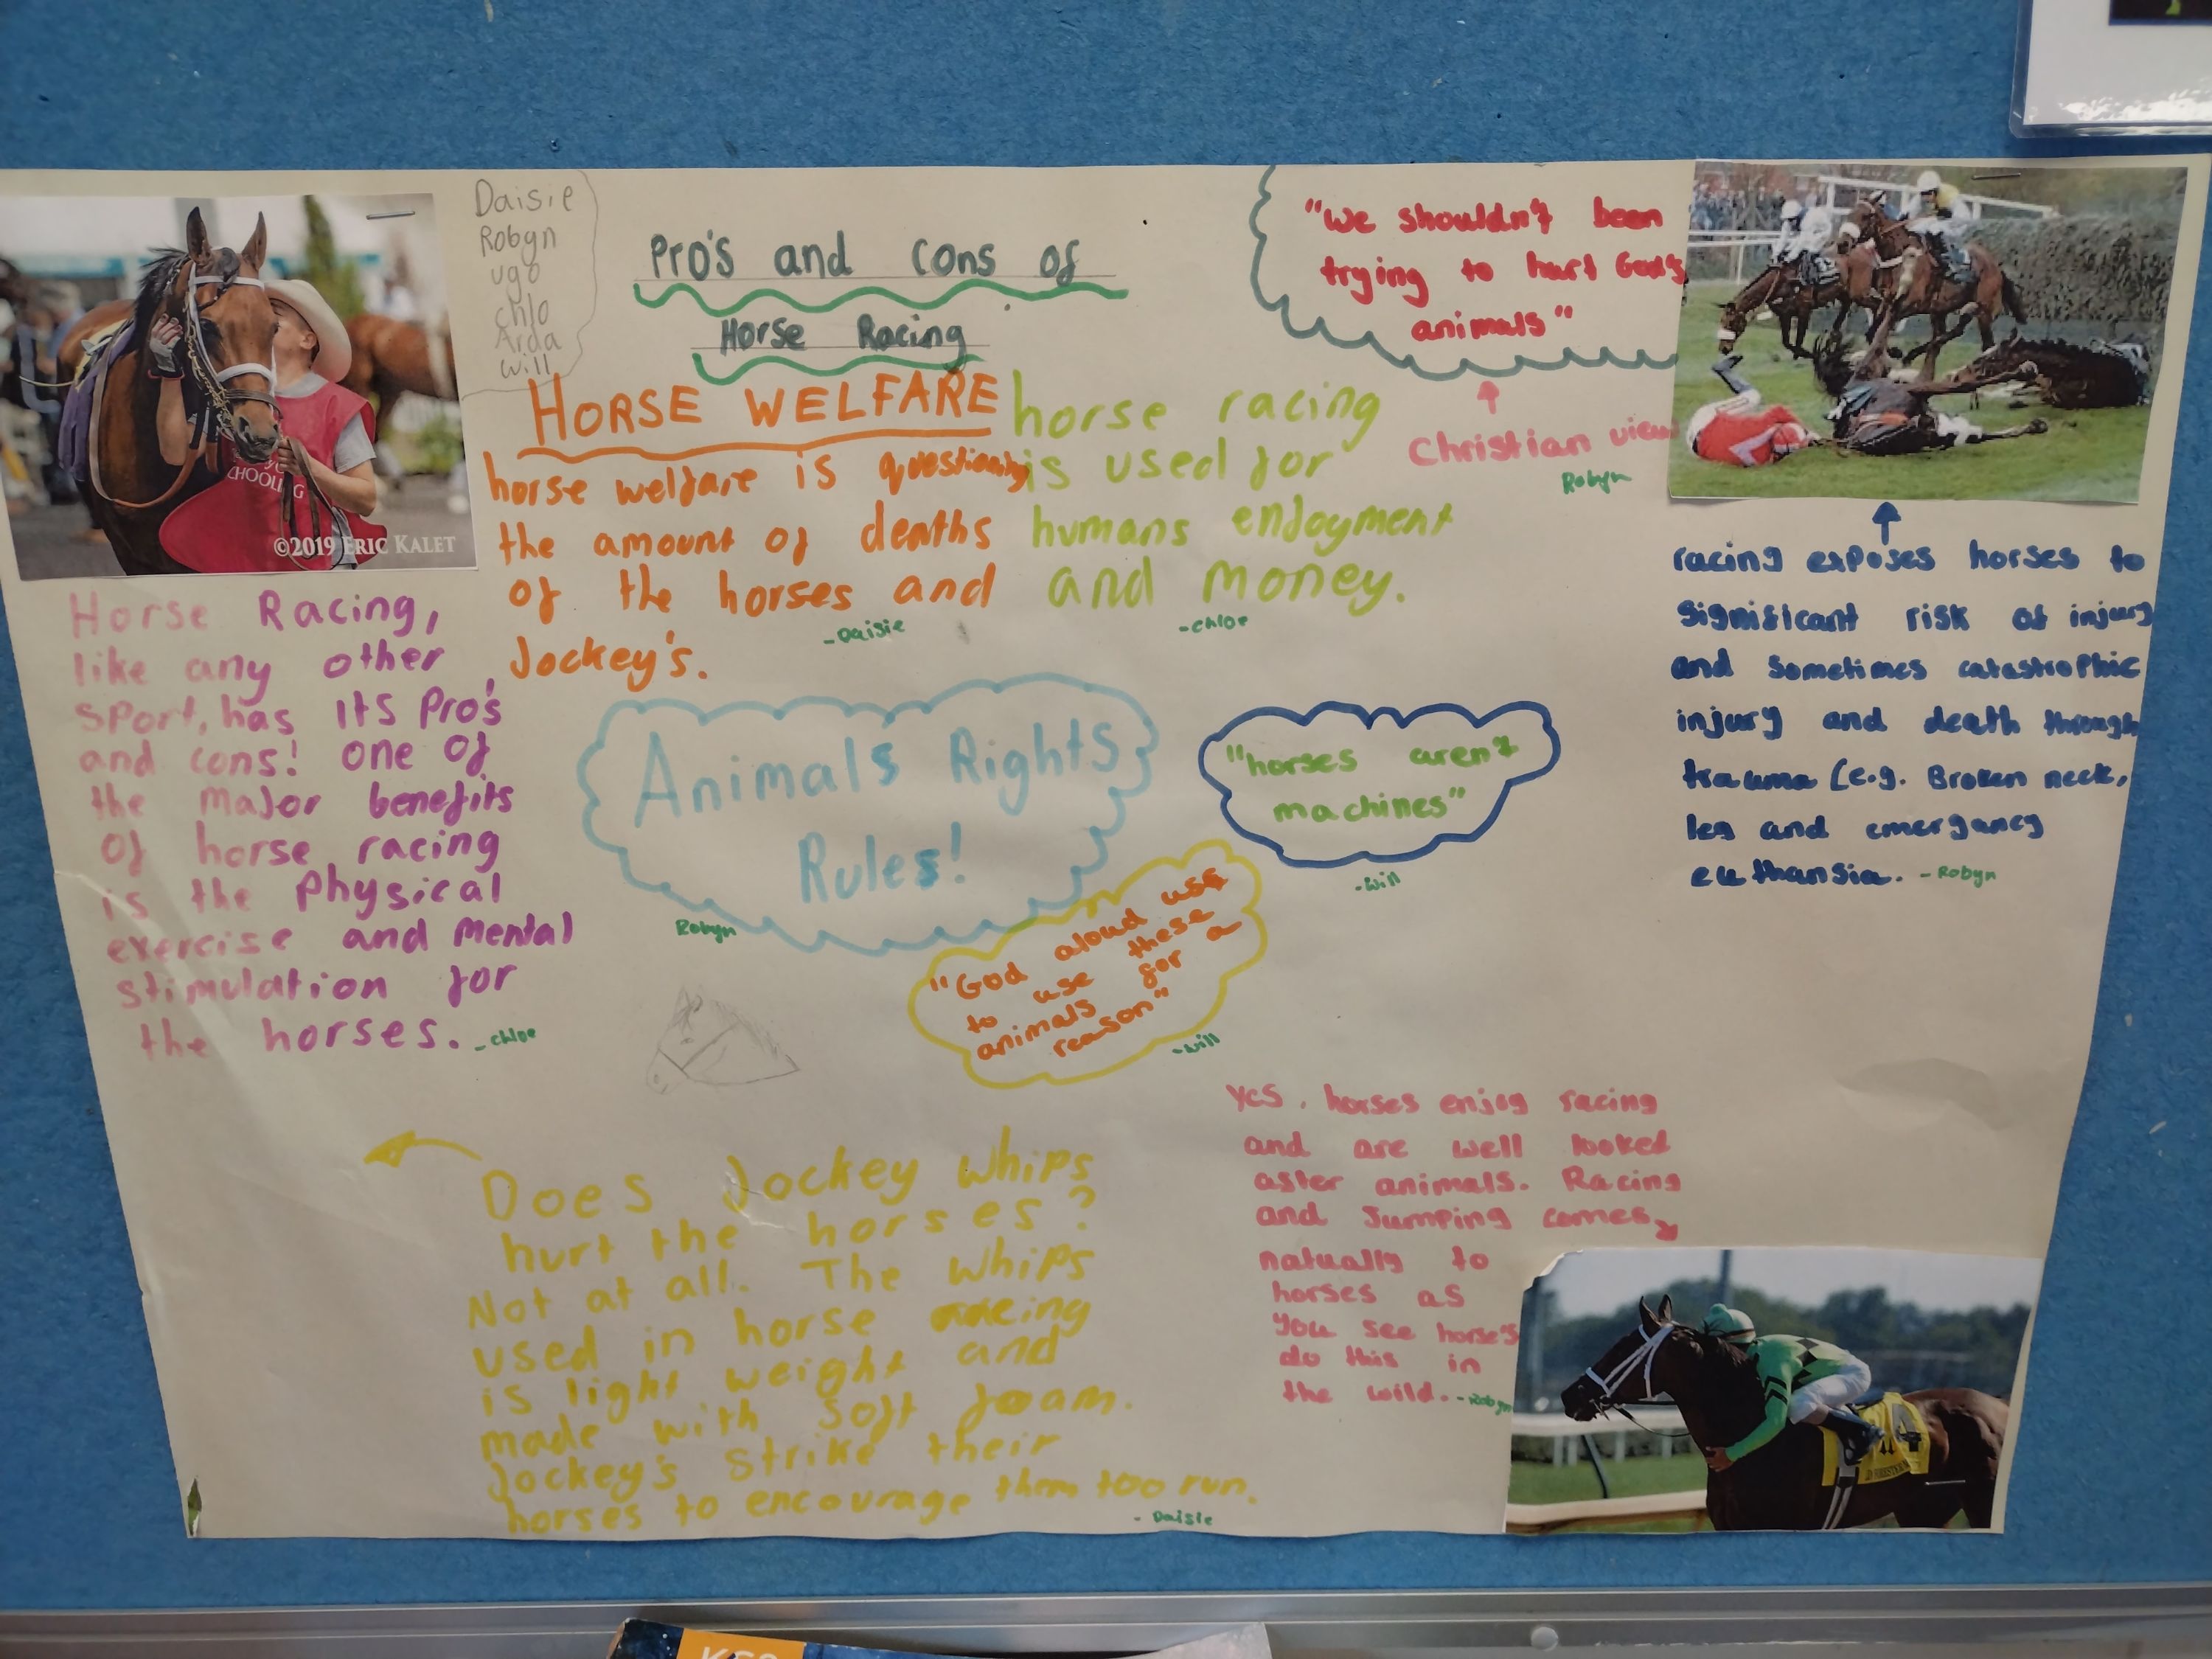 Daisie
Robyn
ugo
chlo
Arda
will
Pro's and cons of
Horse Racing
"we shouldn't been
trying to hurt God's
animals"
Christian view
Robyn
HORSE WELFARE
horse welfare is questioning
the amount of deaths
of the horses and
Jockey's.
-Daisie
horse racing
is used for
humans enjoyment
and money.
-chloe
CHOOLING
©2019 ERIC KALET
Horse Racing,
like any other
sport, has its pro's
and cons! one of
the major benefits
of horse racing
is the physical
exercise and mental
stimulation for
the horses.
-chloe
Animals Rights
Rules!
Robyn
"horses aren't
machines"
-will
"God aloud use
to use these
animals for a
reason"
-will
racing exposes horses to
significant risk of injury
and sometimes catastrophic
injury and death through
trauma (e.g. Broken neck,
leg and emergancy
euthansia.
-Robyn
Does Jockey whips
hurt the horses?
Not at all. The whips
used in horse racing
is light weight and
made with soft foam.
Jockey's strike their
horses to encourage them too run.
-Daisie
Yes, horses enjoy racing
and are well looked
after animals. Racing
and Jumping comes
natually to
horses as
you see horse's
do this in
the wild.
-Robyn
4